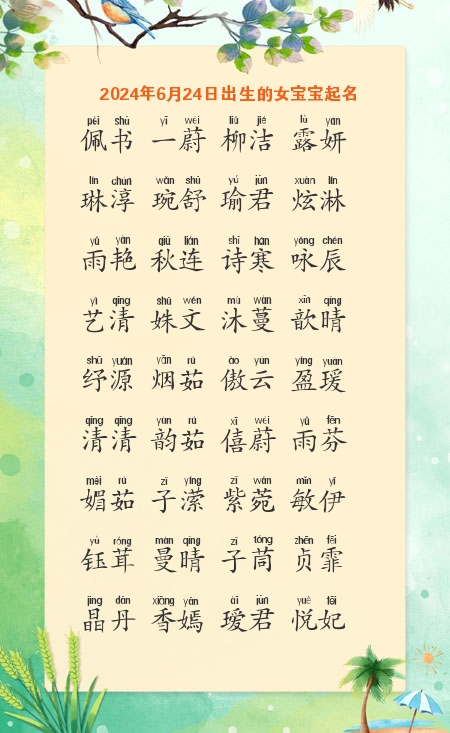 2024年6月24日出生的女宝宝起名
pèi shū yī wèi liǔ jié lù yán
佩书 一蔚 柳洁 露妍
lín chún wǎn shū yú jūn xuàn lín
琳淳 琬舒 瑜君 炫淋
yǔ yàn qiū lián shī hán yǒng chén
雨艳 秋连 诗寒 咏辰
yì qīng shū wén mù wàn xīn qíng
艺清 姝文 沐蔓 歆晴
shū yuán yān rú ào yún yíng yuàn
纾源 烟茹 傲云 盈瑗
qīng qīng yùn rú xī wèi yǔ fēn
清清 韵茹 僖蔚 雨芬
mèi rú zǐ yíng zǐ wǎn mǐn yī
媚茹 子潆 紫菀 敏伊
yù róng màn qíng zǐ tóng zhēn fēi
钰茸 曼晴 子茼 贞霏
jīng dān xiāng yān ài jūn yuè fēi
晶丹 香嫣 瑷君 悦妃